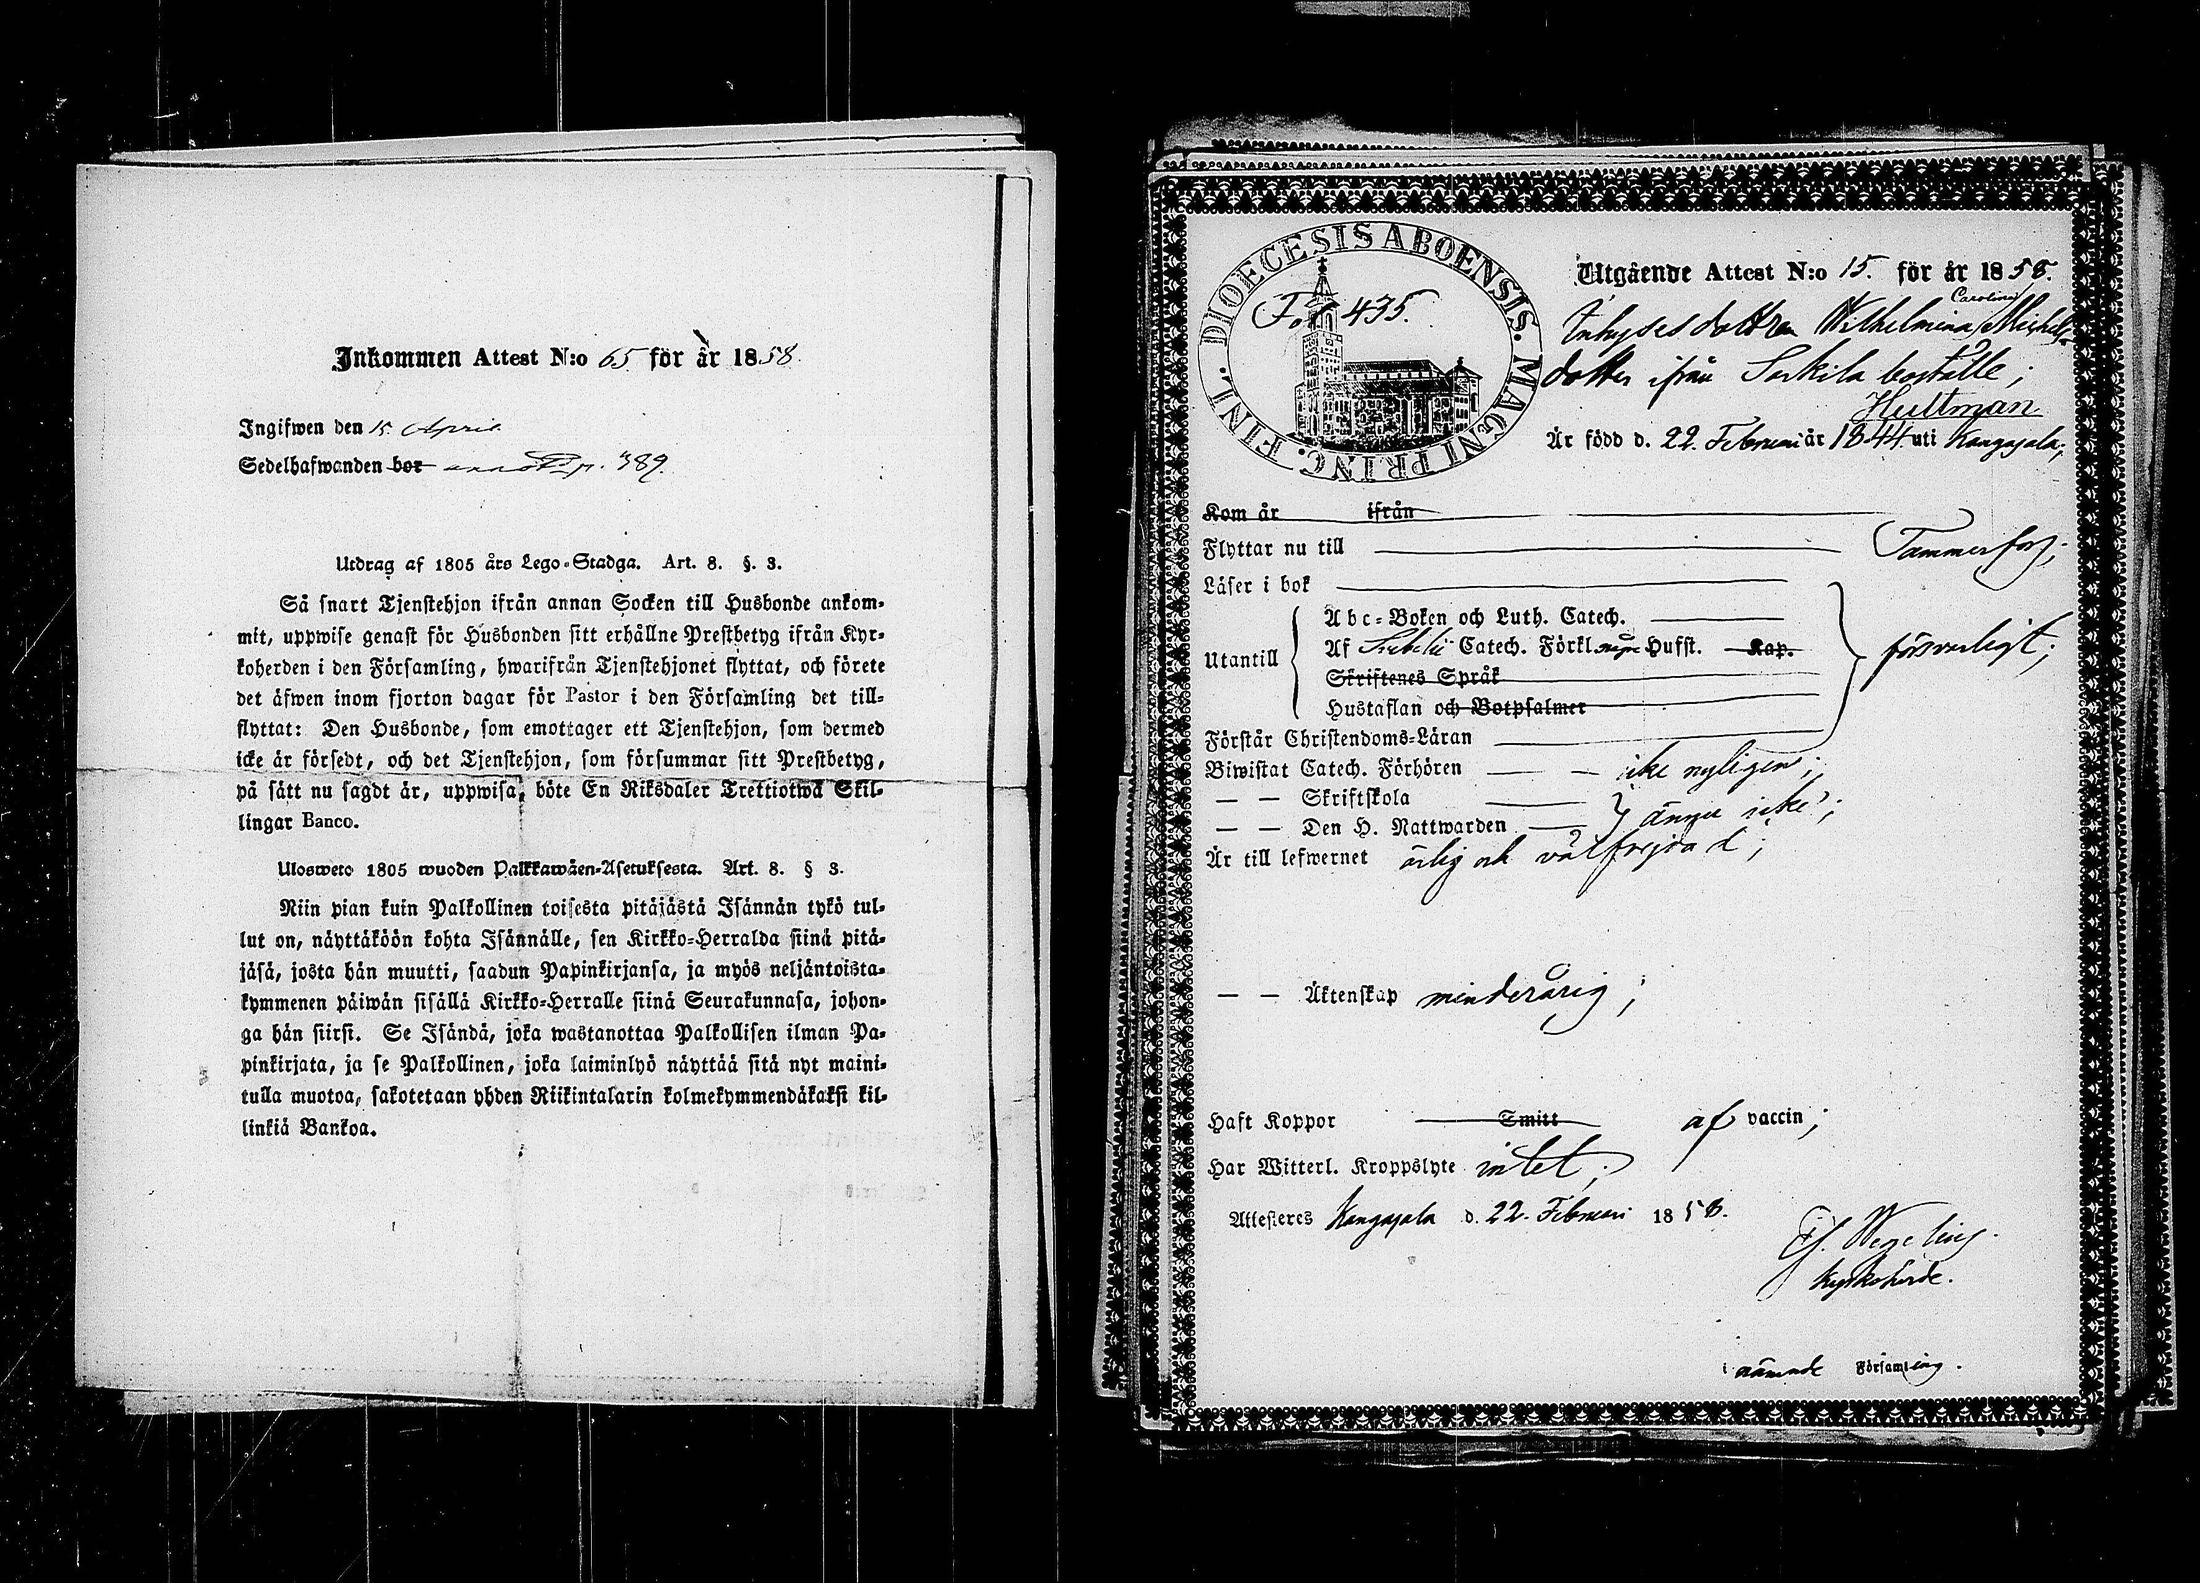 Inkommen Attest N:o 65 för år 1858.
Ingifwen den 15 April
Sedelhafwanden bor annot. p. 389.
Utdrag af 1805 års Lego-Stadga. Art. 8. §. 3.
Så snart Tjenstehjon ifrån annan Socken till Husbonde ankom-
mit, uppwise genast för Husbonden sitt erhållne Prestbetyg ifrån Kyr-
koherden i den Församling, hwarifrån Tjenstehjonet flyttat, och förete
det äfwen inom fjorton dagar för Pastor i den Församling det till-
flyttat: Den Husbonde, som emottager ett Tjenstehjon, som dermed
icke är försedt, och det Tjenstehjon, som försummar sitt Prestbetyg,
på sätt nu sagdt är, uppwisa, böte En Riksdaler Trettiotwå Skil-
lingar Banco.
Ulosweto 1805 wuoden Palkkawäen-Asetuksesta. Art. 8. § 3.
Niin pian kuin Palkollinen toisesta pitäjästä Isännän tykö tul-
lut on, näyttäköön kohta Isännälle, sen Kirkko-Herralda siinä pitä-
jäsä, josta hän muutti, saadun Papinkirjansa, ja myös neljäntoista-
kymmenen päiwän sisällä Kirkko-Herralle siinä Seurakunnasa, johon-
ga hän siirsi. Se Isändä, joka wastanottaa Palkollisen ilman Pa-
pinkirjata, ja se Palkollinen, joka laiminlyö näyttää sitä nyt maini-
tulla muotoa, sakotetaan yhden Riikintalarin kolmekymmendäkaksi kil-
linkiä Bankoa.
DIOECESIS ABOENSIS. MAGNI PRINC. FINL.
Fol 435.
Utgående Attest N:o 15. för år 1858.
Caroline
Inhyses dottren Wilhelmina Michels
dotter ifrån Sorkila boställe;
Hultman
Är född d. 22. Februari år 1844 uti Kangasala;
Kom år ifrån
Flyttar nu till Tammerfors;
Läser i bok
Abc-Boken och Luth. Catech.
Utantill Af Swebelii Catech. Förkl. någre Hufst. Kap. försvarligt;
Skriftenes Språk
Hustaflan och Botpsalmer
Förstår Christendoms-Läran
Biwistat Catech. Förhören — — icke nyligen;
— — Skriftskola
— — Den H. Nattwarden — ännu icke;
Är till lefwernet ärlig och välfrejdad;
— — Äktenskap minderårig;
Haft Koppor Smitt af vaccin;
Har Witterl. Kroppslyte intet;
Attesteres Kangasala d. 22. Februari 1858.
Wegelius.
Kyrkoherde.
i nämnde Församling.